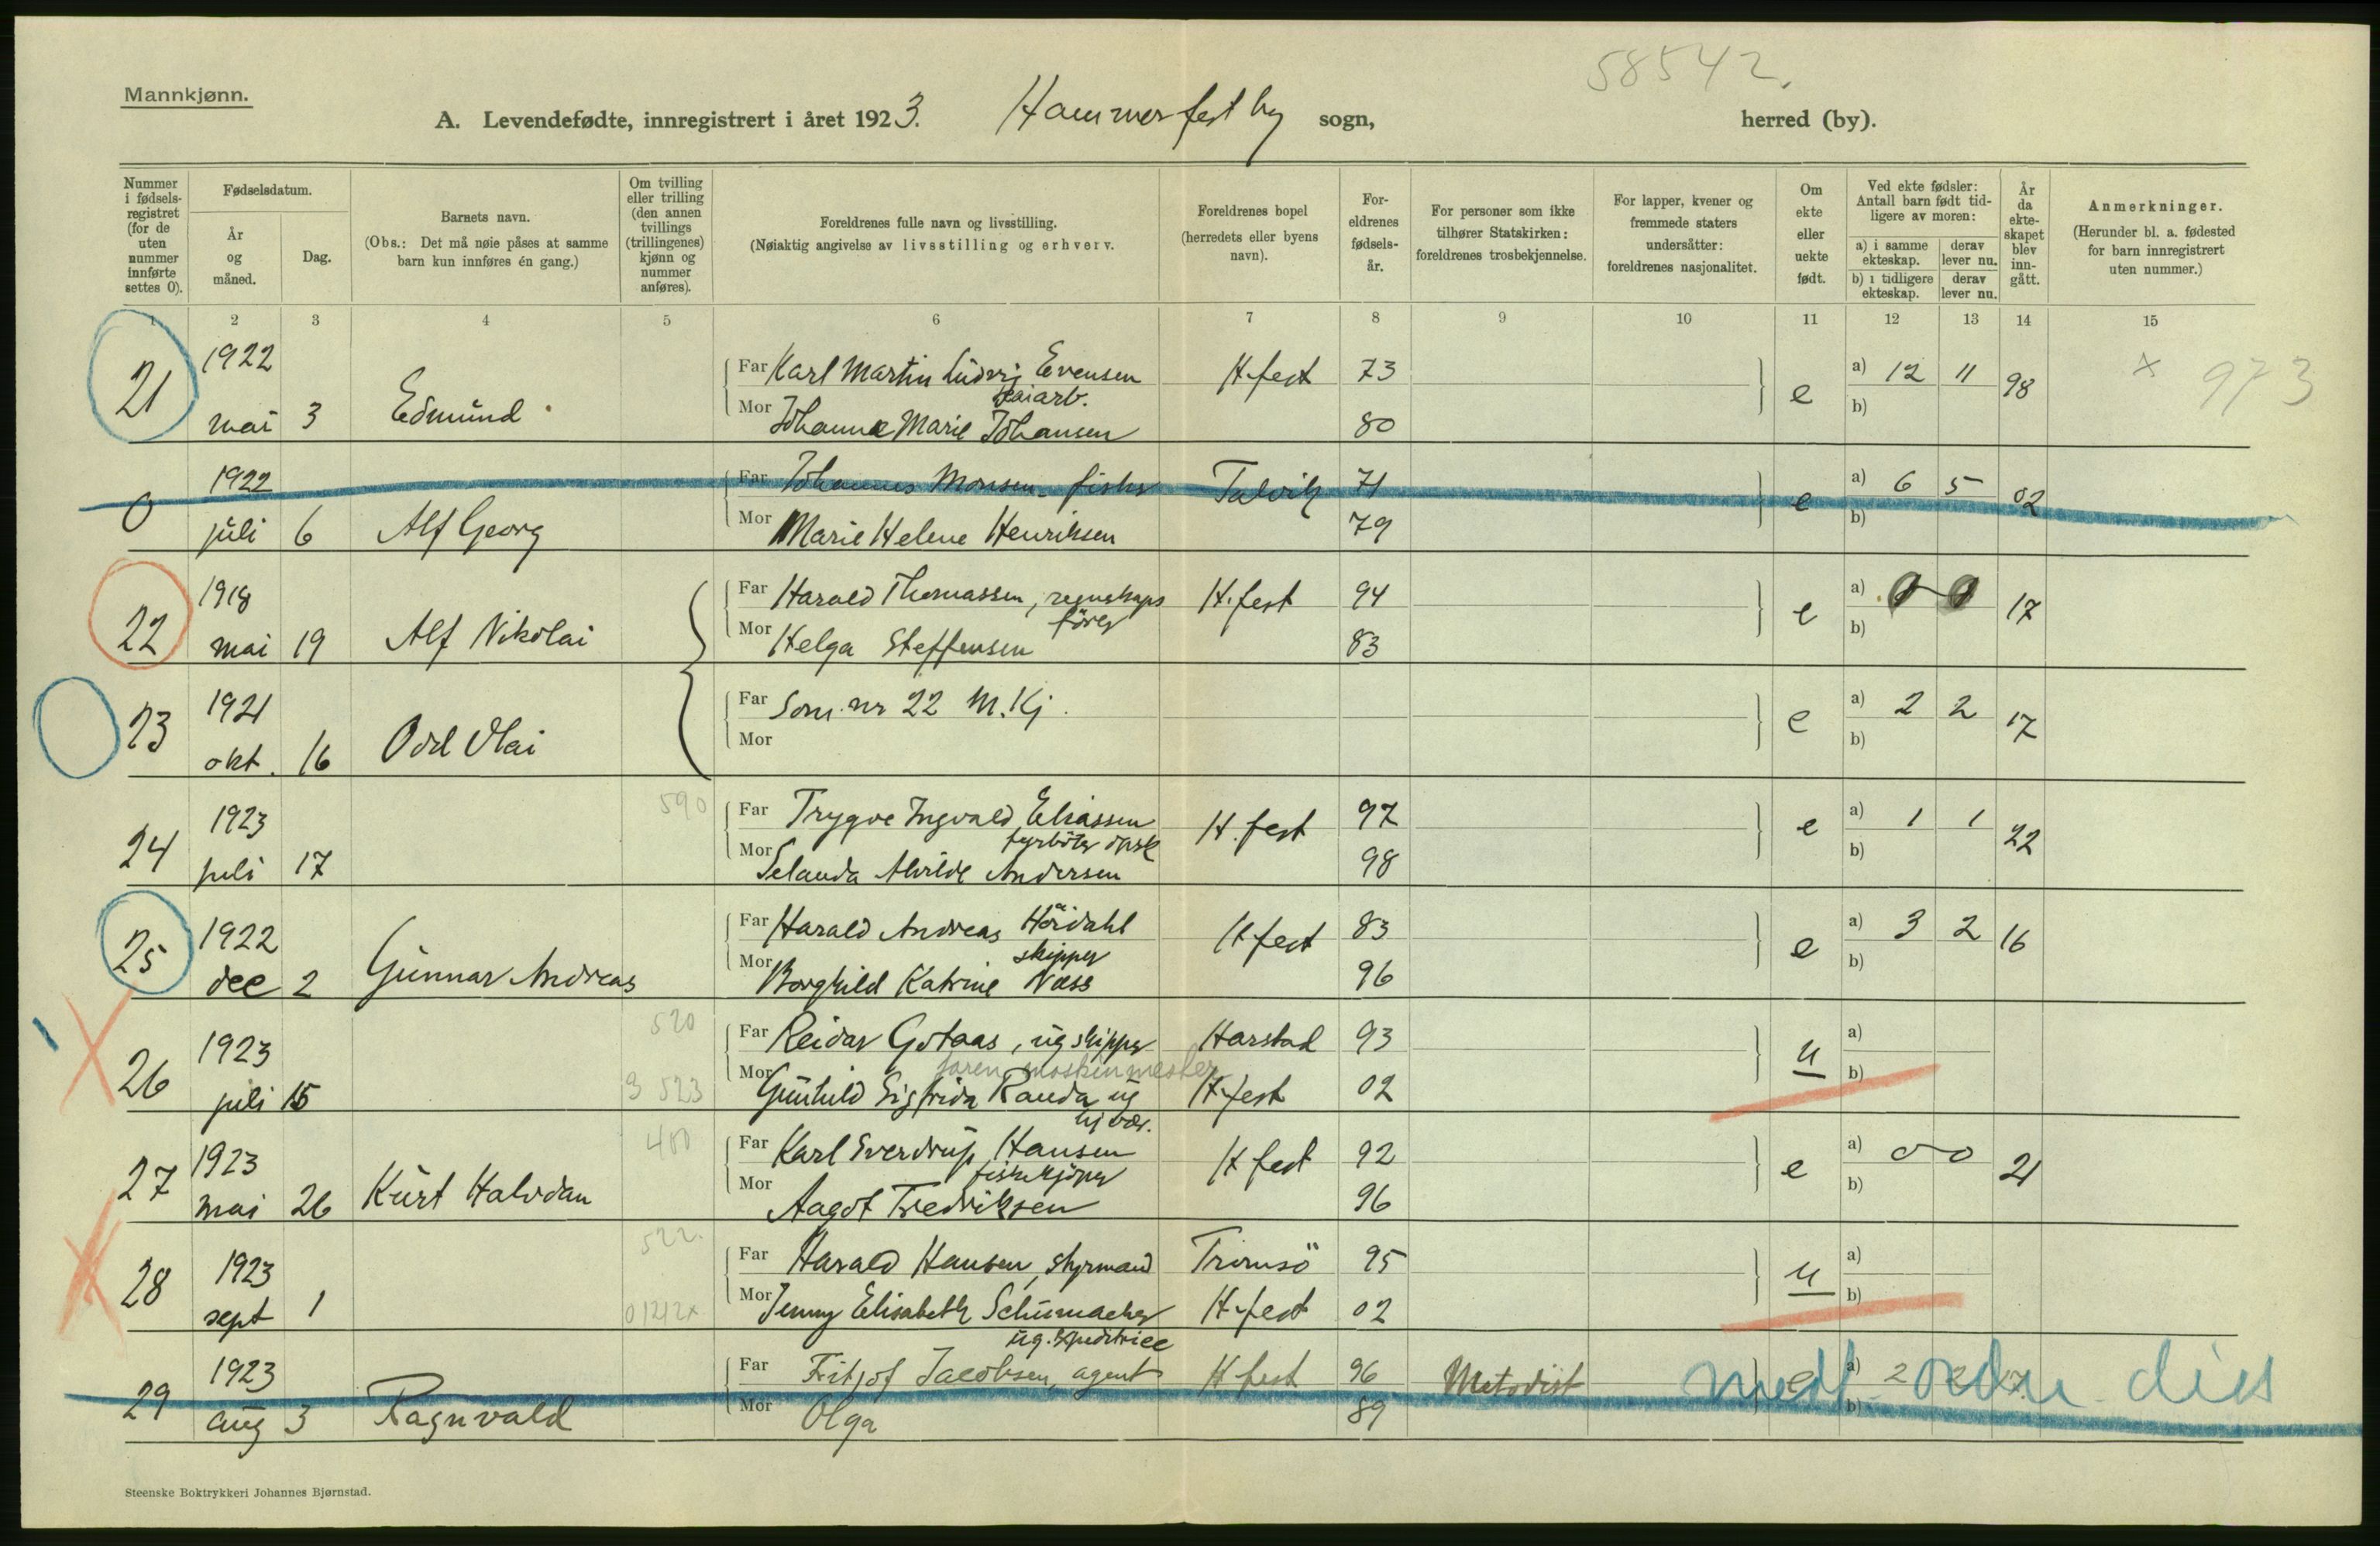 58542.
Mannkjønn.
A. Levendefødte, innregistrert i året 1923. Hammerfest by sogn, herred (by).
Nummer i fødselsregistret (for de uten nummer innførte settes 0).
Fødselsdatum.
År og måned.
Dag.
Barnets navn.
(Obs.: Det må nøie påses at samme barn kun innføres én gang.)
Om tvilling eller trilling (den annen tvillings (trillingenes) kjønn og nummer anføres).
Foreldrenes fulle navn og livsstilling.
(Nøiaktig angivelse av livsstilling og erhverv.
Foreldrenes bopel (herredets eller byens navn).
Foreldrenes fødselsår.
For personer som ikke tilhører Statskirken: foreldrenes trosbekjennelse.
For lapper, kvener og fremmede staters undersåtter: foreldrenes nasjonalitet.
Om ekte eller uekte født.
Ved ekte fødsler: Antall barn født tidligere av moren:
a) i samme ekteskap. derav lever nu.
b) i tidligere ekteskap. derav lever nu.
År da ekteskapet blev inngått.
Anmerkninger.
(Herunder bl. a. fødested for barn innregistrert uten nummer.)
1 2 3 4 5 6 7 8 9 10 11 12 13 14 15
21 1922 mai 3 Edmund Far Karl Martin Ludvig Evensen H.fest 73 e a) 12 11 98 x 973
kaiarb.
Mor Johanna Marie Johansen 80 b)
0 1922 juli 6 Alf Georg Far Johannes Monsen - fisker Talvik 71 e a) 6 5 02
Mor Marie Helene Henriksen 79 b)
22 1918 mai 19 Alf Nikolai Far Harald Thomassen, regnskaps H.fest 94 e a) 0 0 17
fører
Mor Helga Steffensen 83 b)
23 1921 okt. 16 Odd Olai Far Som nr 22 M.Kj. e a) 2 2 17
Mor b)
24 1923 juli 17 590 Far Trygve Ingvald Eliassen H.fest 97 e a) 1 1 22
fyrbøter
Mor Selanda Alvilde Andersen 98 b)
25 1922 dec 2 Gunnar Andreas Far Harald Andreas Hördahl H.fest 83 e a) 3 2 16
skipper
Mor Borghild Katrine Næss 96 b)
26 1923 juli 15 520 Far Reidar Gotaas, ug skipper Harstad 93 u a)
faren maskinmester
3 523 Mor Gunhild Sigfrida Randa ug H.fest 02 b)
27 1923 mai 26 Kurt Halvdan 400 Far Karl Sverdrup Hansen H fest 92 e a) 0 0 21
fiskekjøper
Mor Aagot Fredriksen 96 b)
28 1923 sept 1 522. Far Harald Hansen, styrmand Tromsö 95 u a)
01212x Mor Jenny Elisabeth Schumacher H.fest 02 b)
ug. expeditrice
29 1923 aug 3 Ragnvald Far Fritjof Jacobsen, agent H fest 96 Metodist e a) 2 2 17
Mor Olga 89 b)
Steenske Boktrykkeri Johannes Bjørnstad.